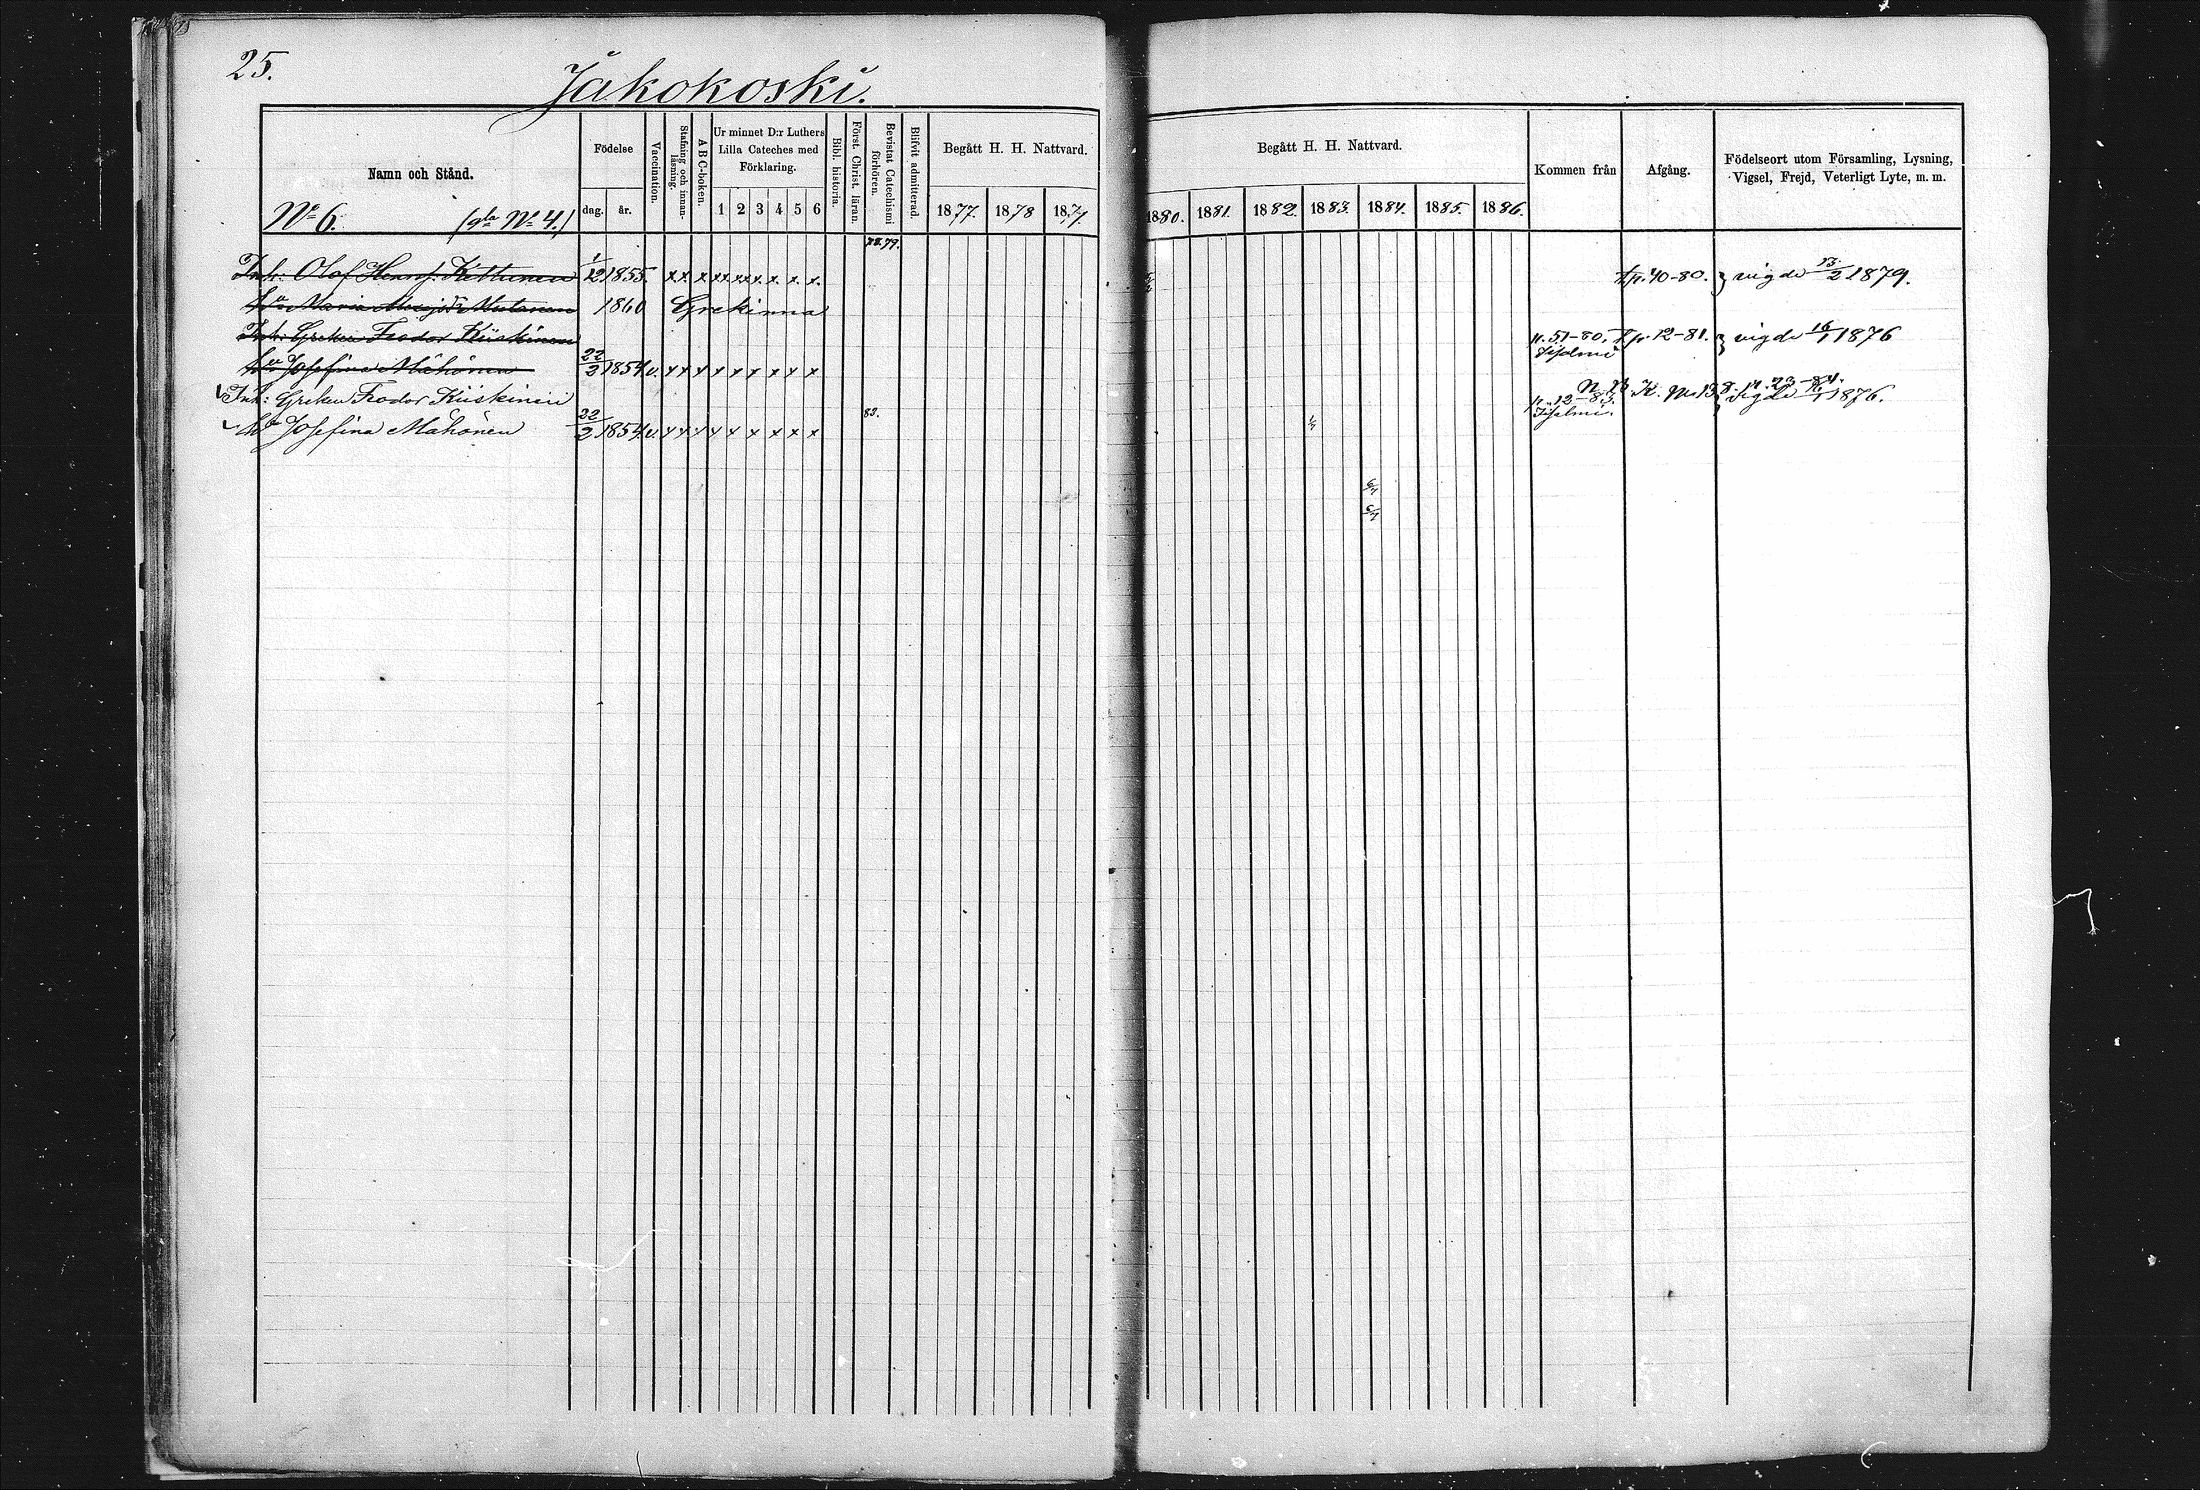 25.
Jakokoski.
Namn och Stånd.
Födelse
dag.
år.
Vaccination.
Stafning och innanläsning.
A B C-boken.
Ur minnet D:r Luthers
Lilla Cateches med
Förklaring.
1 2 3 4 5 6
Bibl. historia.
Först. Christ. läran.
Bevistat Catechismi förhören.
Blifvit admitterad.
Begått H. H. Nattvard.
1877. 1878 1879
Begått H. H. Nattvard.
1880. 1881. 1882. 1883. 1884. 1885. 1886.
Kommen från
Afgång.
Födelseort utom Församling, Lysning,
Vigsel, Frejd, Veterligt Lyte, m. m.
No 6. (gla No 4.)
78.79.
Inh: Olof Kettunen 1/12 1855. x x x x x x x x x x p. 40-80. } vigde 13/2 1879.
hu Maria 1860 Grekinna
Inh: Greken Feodor Kiiskinen n. 51-80. p. 12-81. } vigde 16/1 1876
Iisalmi
hu Josefina Mähönen 22/2 1854 v. x x x x x x x x x
Inh: Greken Feodor Kiiskinen n. 12-83. K. vigde 1876.
Iisalmi
hu Josefina Mähönen 22/2 1854 v. x x x x x x x x x 82.
6/7
6/7